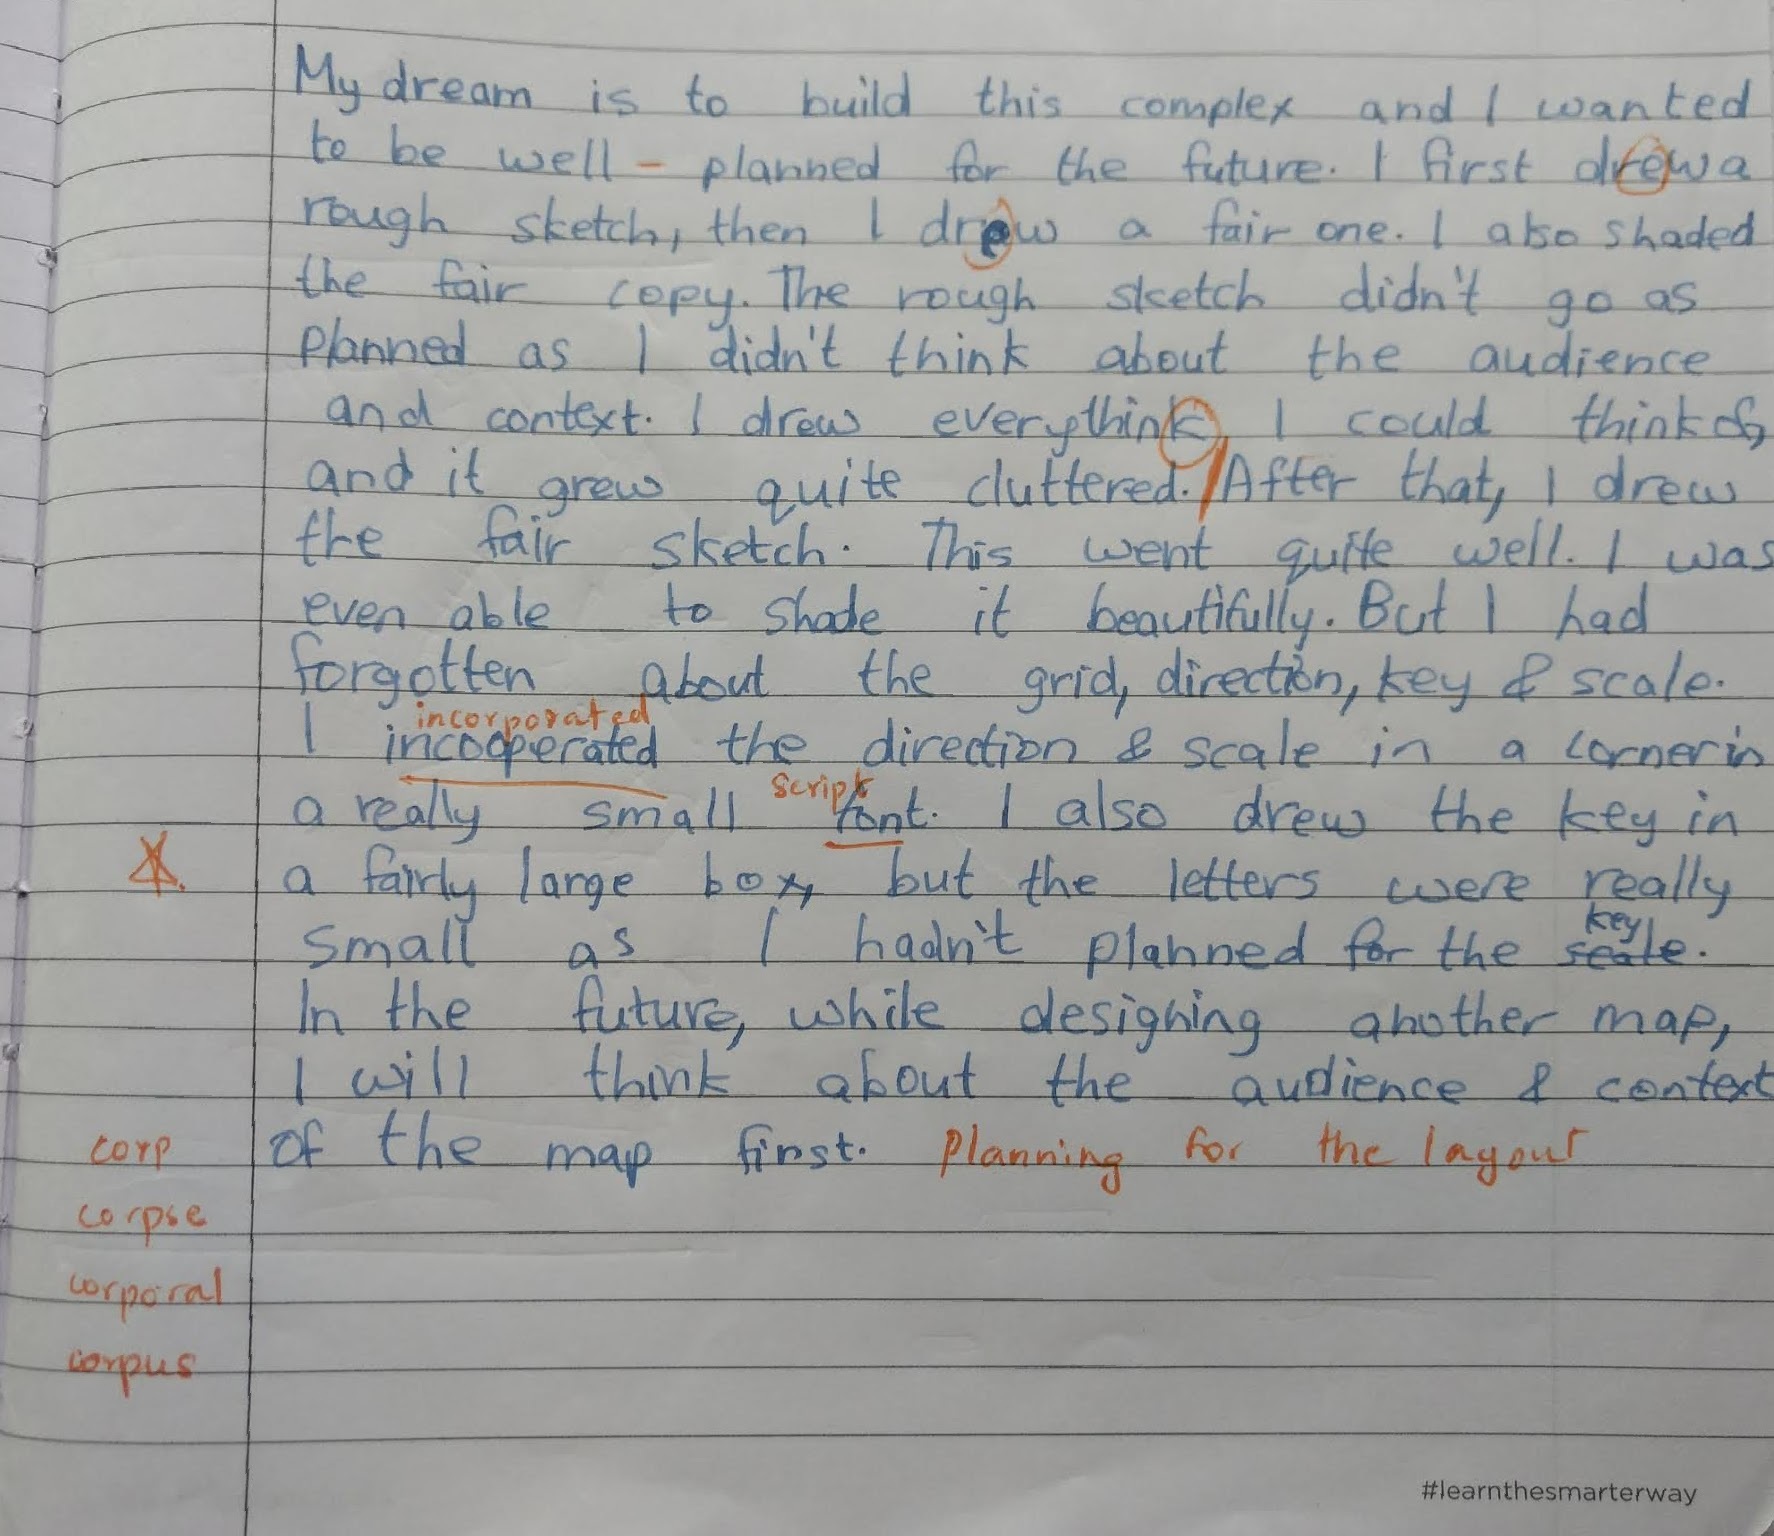 My dream is to build this complex and I wanted
to be well - planned for the future. I first drew a
rough sketch, then I drew a fair one. I also shaded
the fair copy. The rough sketch didn't go as
planned as I didn't think about the audience
and context. I drew everythink, I could think of,
and it grew quite cluttered. / After that, I drew
the fair sketch. This went quite well. I was
even able to shade it beautifully. But I had
forgotten about the grid, direction, key & scale.
incorporated
I incooperated the direction & scale in a corner in
script
a really small font. I also drew the key in
a fairly large box, but the letters were really
key
small as I hadn't planned for the scale.
In the future, while designing another map,
I will think about the audience & context
of the map first. Planning for the layout
corp
corpse
corporal
corpus
#learnthesmarterway